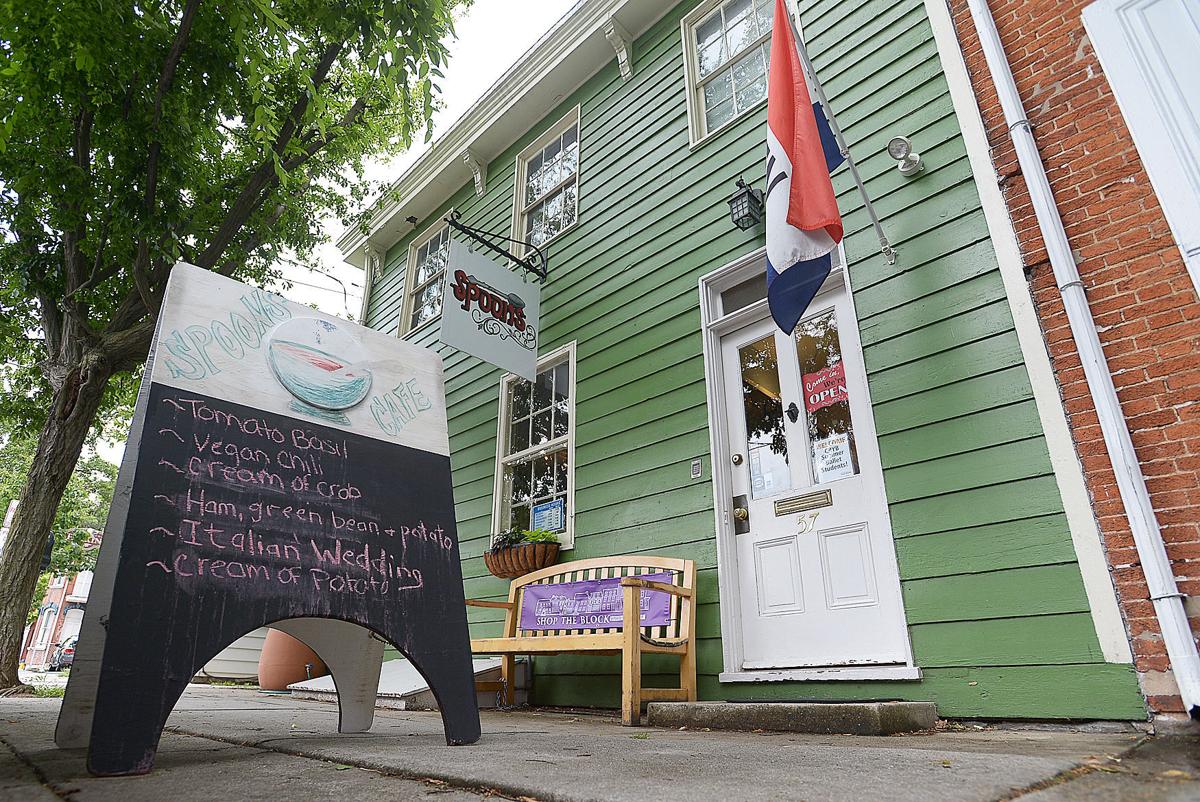 SPOONS
CAFE
~Tomato Basil
~Vegan chili
~Cream of crab
~Ham, green bean + potato
~Italian Wedding
~Cream of Potato
SPOONS
SHOP THE BLOCK
Come in,
We're
OPEN
WELCOME
CPYB
Summer
Ballet
Students!
57